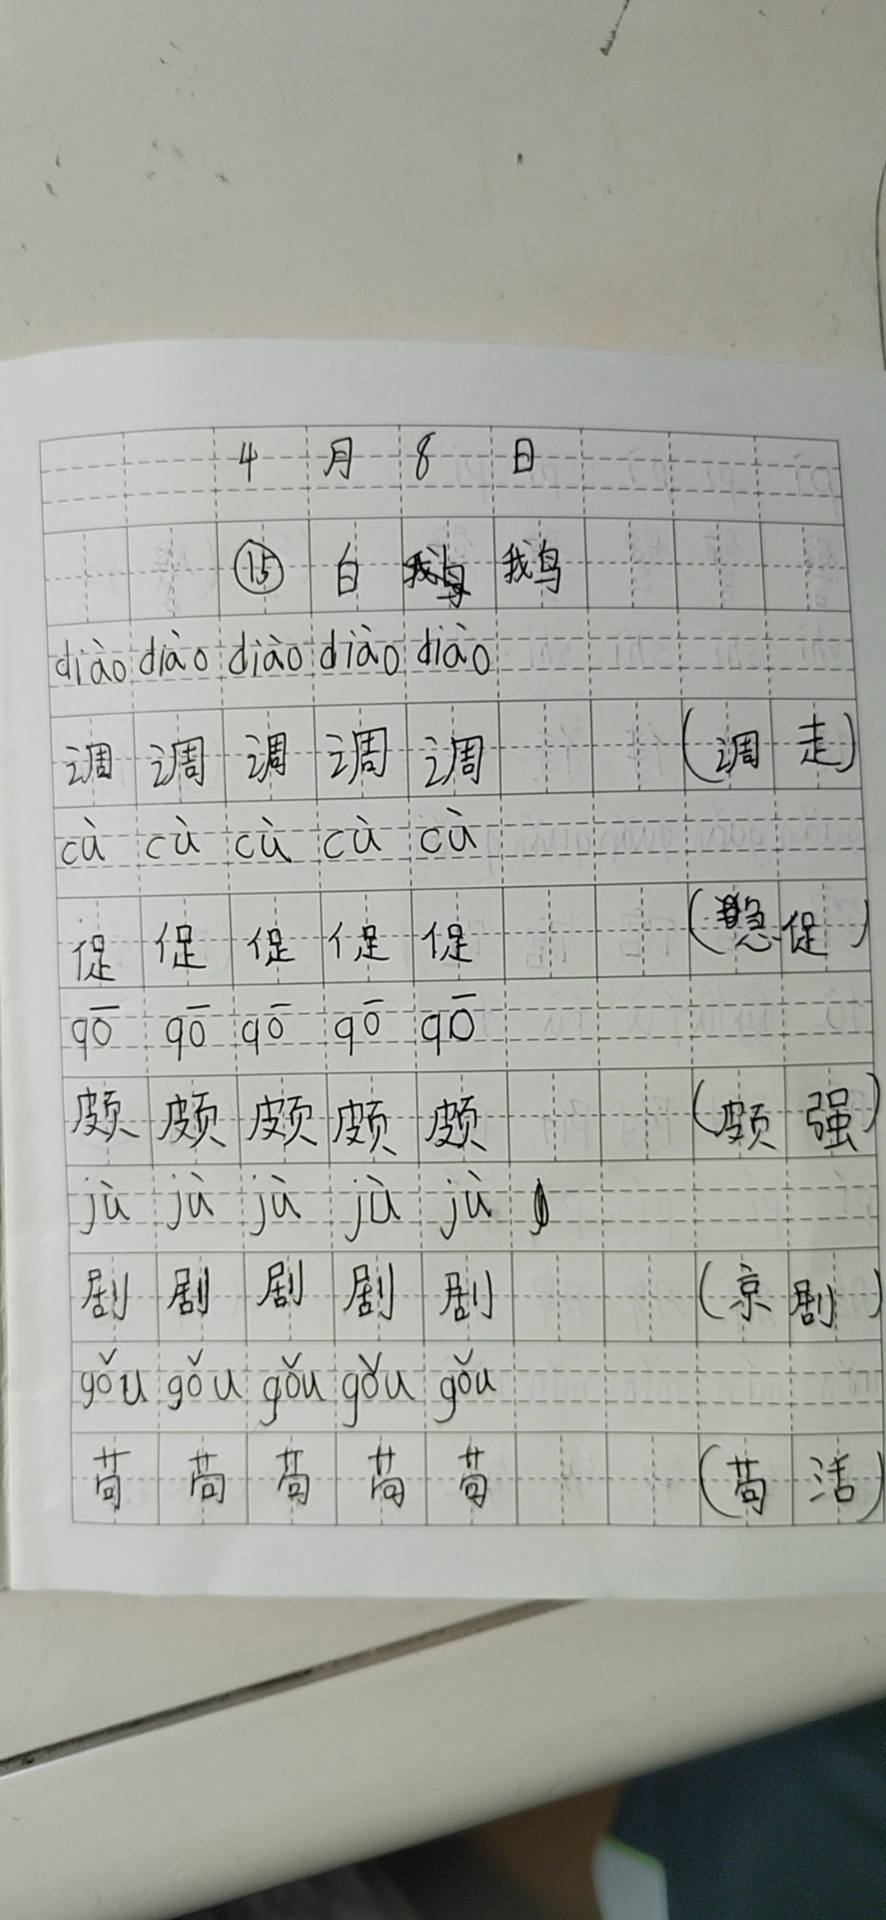 4 月 8 日
⑮ 白 鹅
diào diào diào diào diào
调 调 调 调 调 (调 走)
cù cù cù cù cù
促 促 促 促 促 (急 促)
qō qō qō qō qō
颇 颇 颇 颇 颇 (颇 强)
jù jù jù jù jù
剧 剧 剧 剧 剧 (京 剧)
gǒu gǒu gǒu gǒu gǒu
苟 苟 苟 苟 苟 (苟 活)